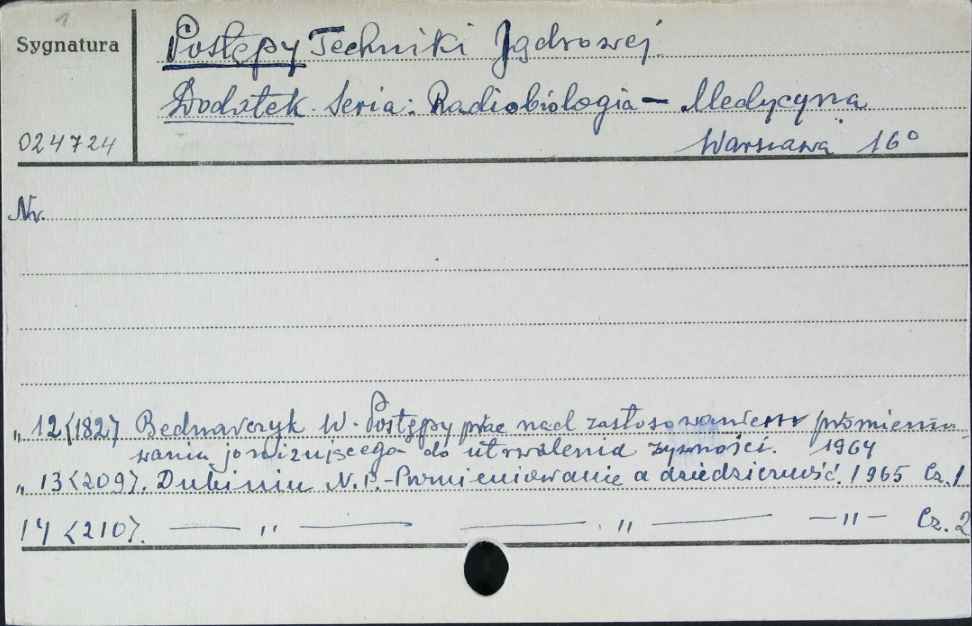 1
Sygnatura
Postępy Techniki Jądrowej.
Dodatek. Seria: Radiobiologia - Medycyna
024724
Warszawa 16°
Nr.
" 12<182> Bednarczyk W. Postępy prac nad zastosowaniem promienio-
wania jonizującego do utrwalenia żywności. 1964
" 13<209>. Dubinin N. P. - Promieniowanie a dziedziczność. 1965 Cz. 1
14<210>. — " — — " — — " — Cz. 2